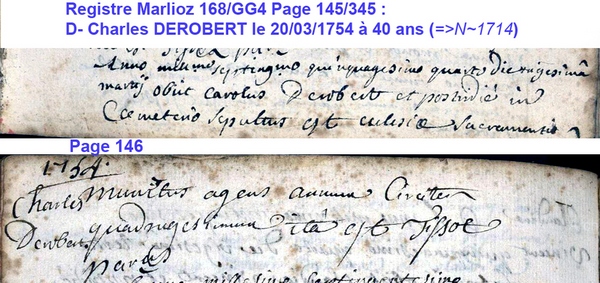 Registre Marlioz 168/GG4 Page 145/345 :
D- Charles DEROBERT le 20/03/1754 à 40 ans (=>N~1714)
Anno millimo septingmo quinquagesimo quarto die vigesimâ
martij obiit carolus Derobert et postridiè in
Cœmeterio sepultus est ecclesiæ Sacramentis
Page 146
1754
Charles munitus agens annum Circiter
Derobert quadragesimum ità est Tissot